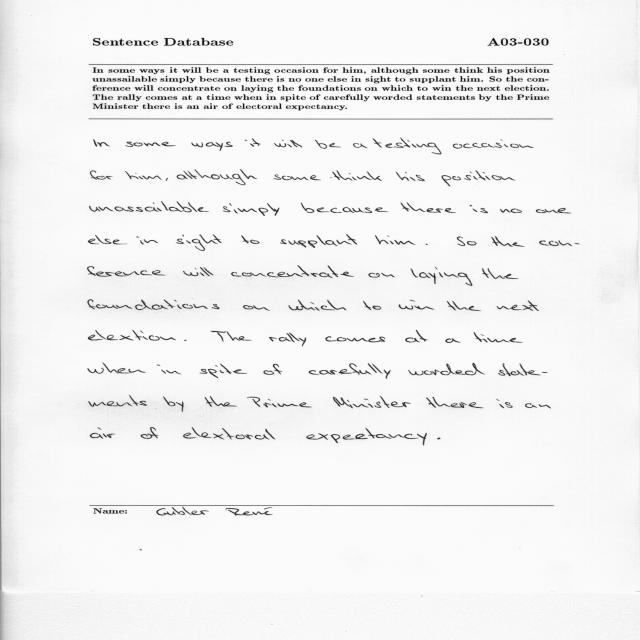 Sentence Database A03-030
In some ways it will be a testing occasion for him, although some think his position
unassailable simply because there is no one else in sight to supplant him. So the con-
ference will concentrate on laying the foundations on which to win the next election.
The rally comes at a time when in spite of carefully worded statements by the Prime
Minister there is an air of electoral expectancy.
In some ways it will be a testing occasion
for him, although some think his position
unassailable simply because there is no one
else in sight to supplant him. So the con-
ference will concentrate on laying the
foundations on which to win the next
elextion. The rally comes at a time
when in spite of carefully worded state-
ments by the Prime Minister there is an
air of elextoral expectancy.
Name: Gubler René